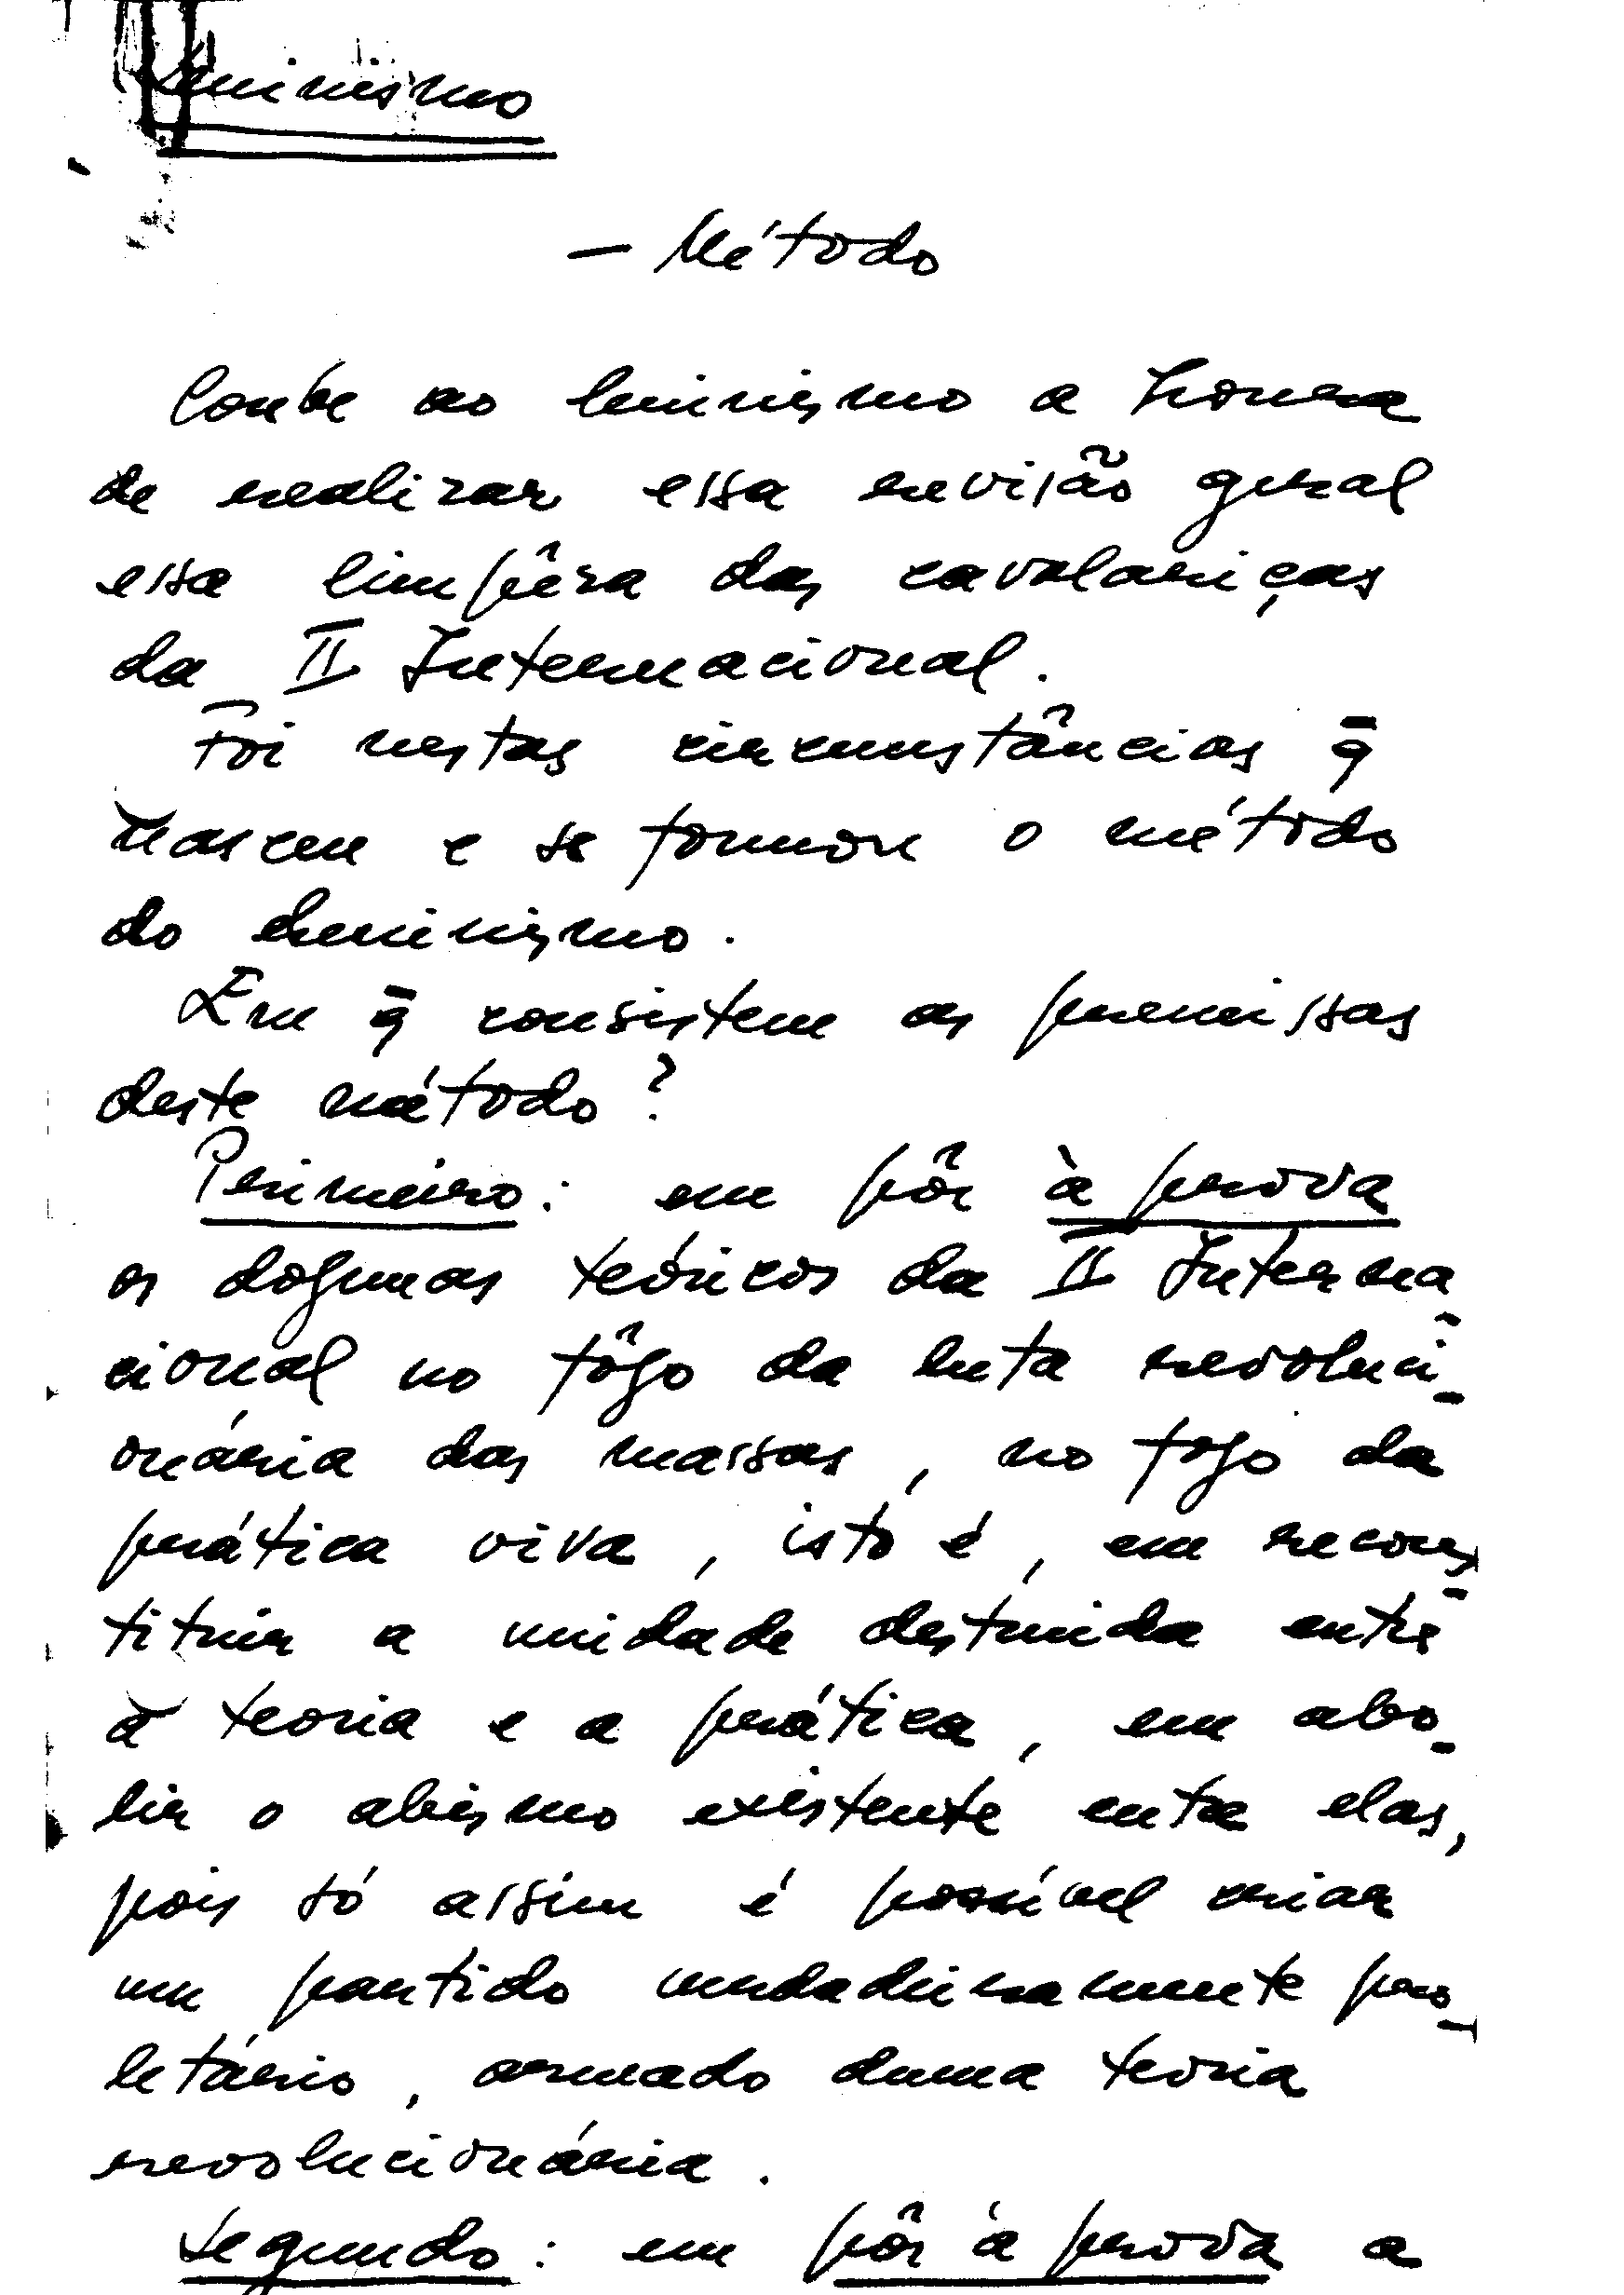 Leninismo
— Método
Coube ao leninismo a honra
de realizar essa revisão geral
essa limpêza das cavalariças
da II Internacional.
Foi nestas circunstâncias q̄
nasceu e se formou o método
do leninismo.
Em q̄ consistem as premissas
deste método?
Primeiro: em pôr à prova
os dogmas teóricos da II Interna
cional no fôgo da luta revoluci-
onária das massas, no fogo da
prática viva, isto é, em recons
tituir a unidade destruida entre
a teoria e a prática, em abo-
lir o abismo existente entre elas,
pois só assim é possível criar
um partido verdadeiramente pro-
letário, armado duma teoria
revolucionária.
Segundo: em pôr à prova a